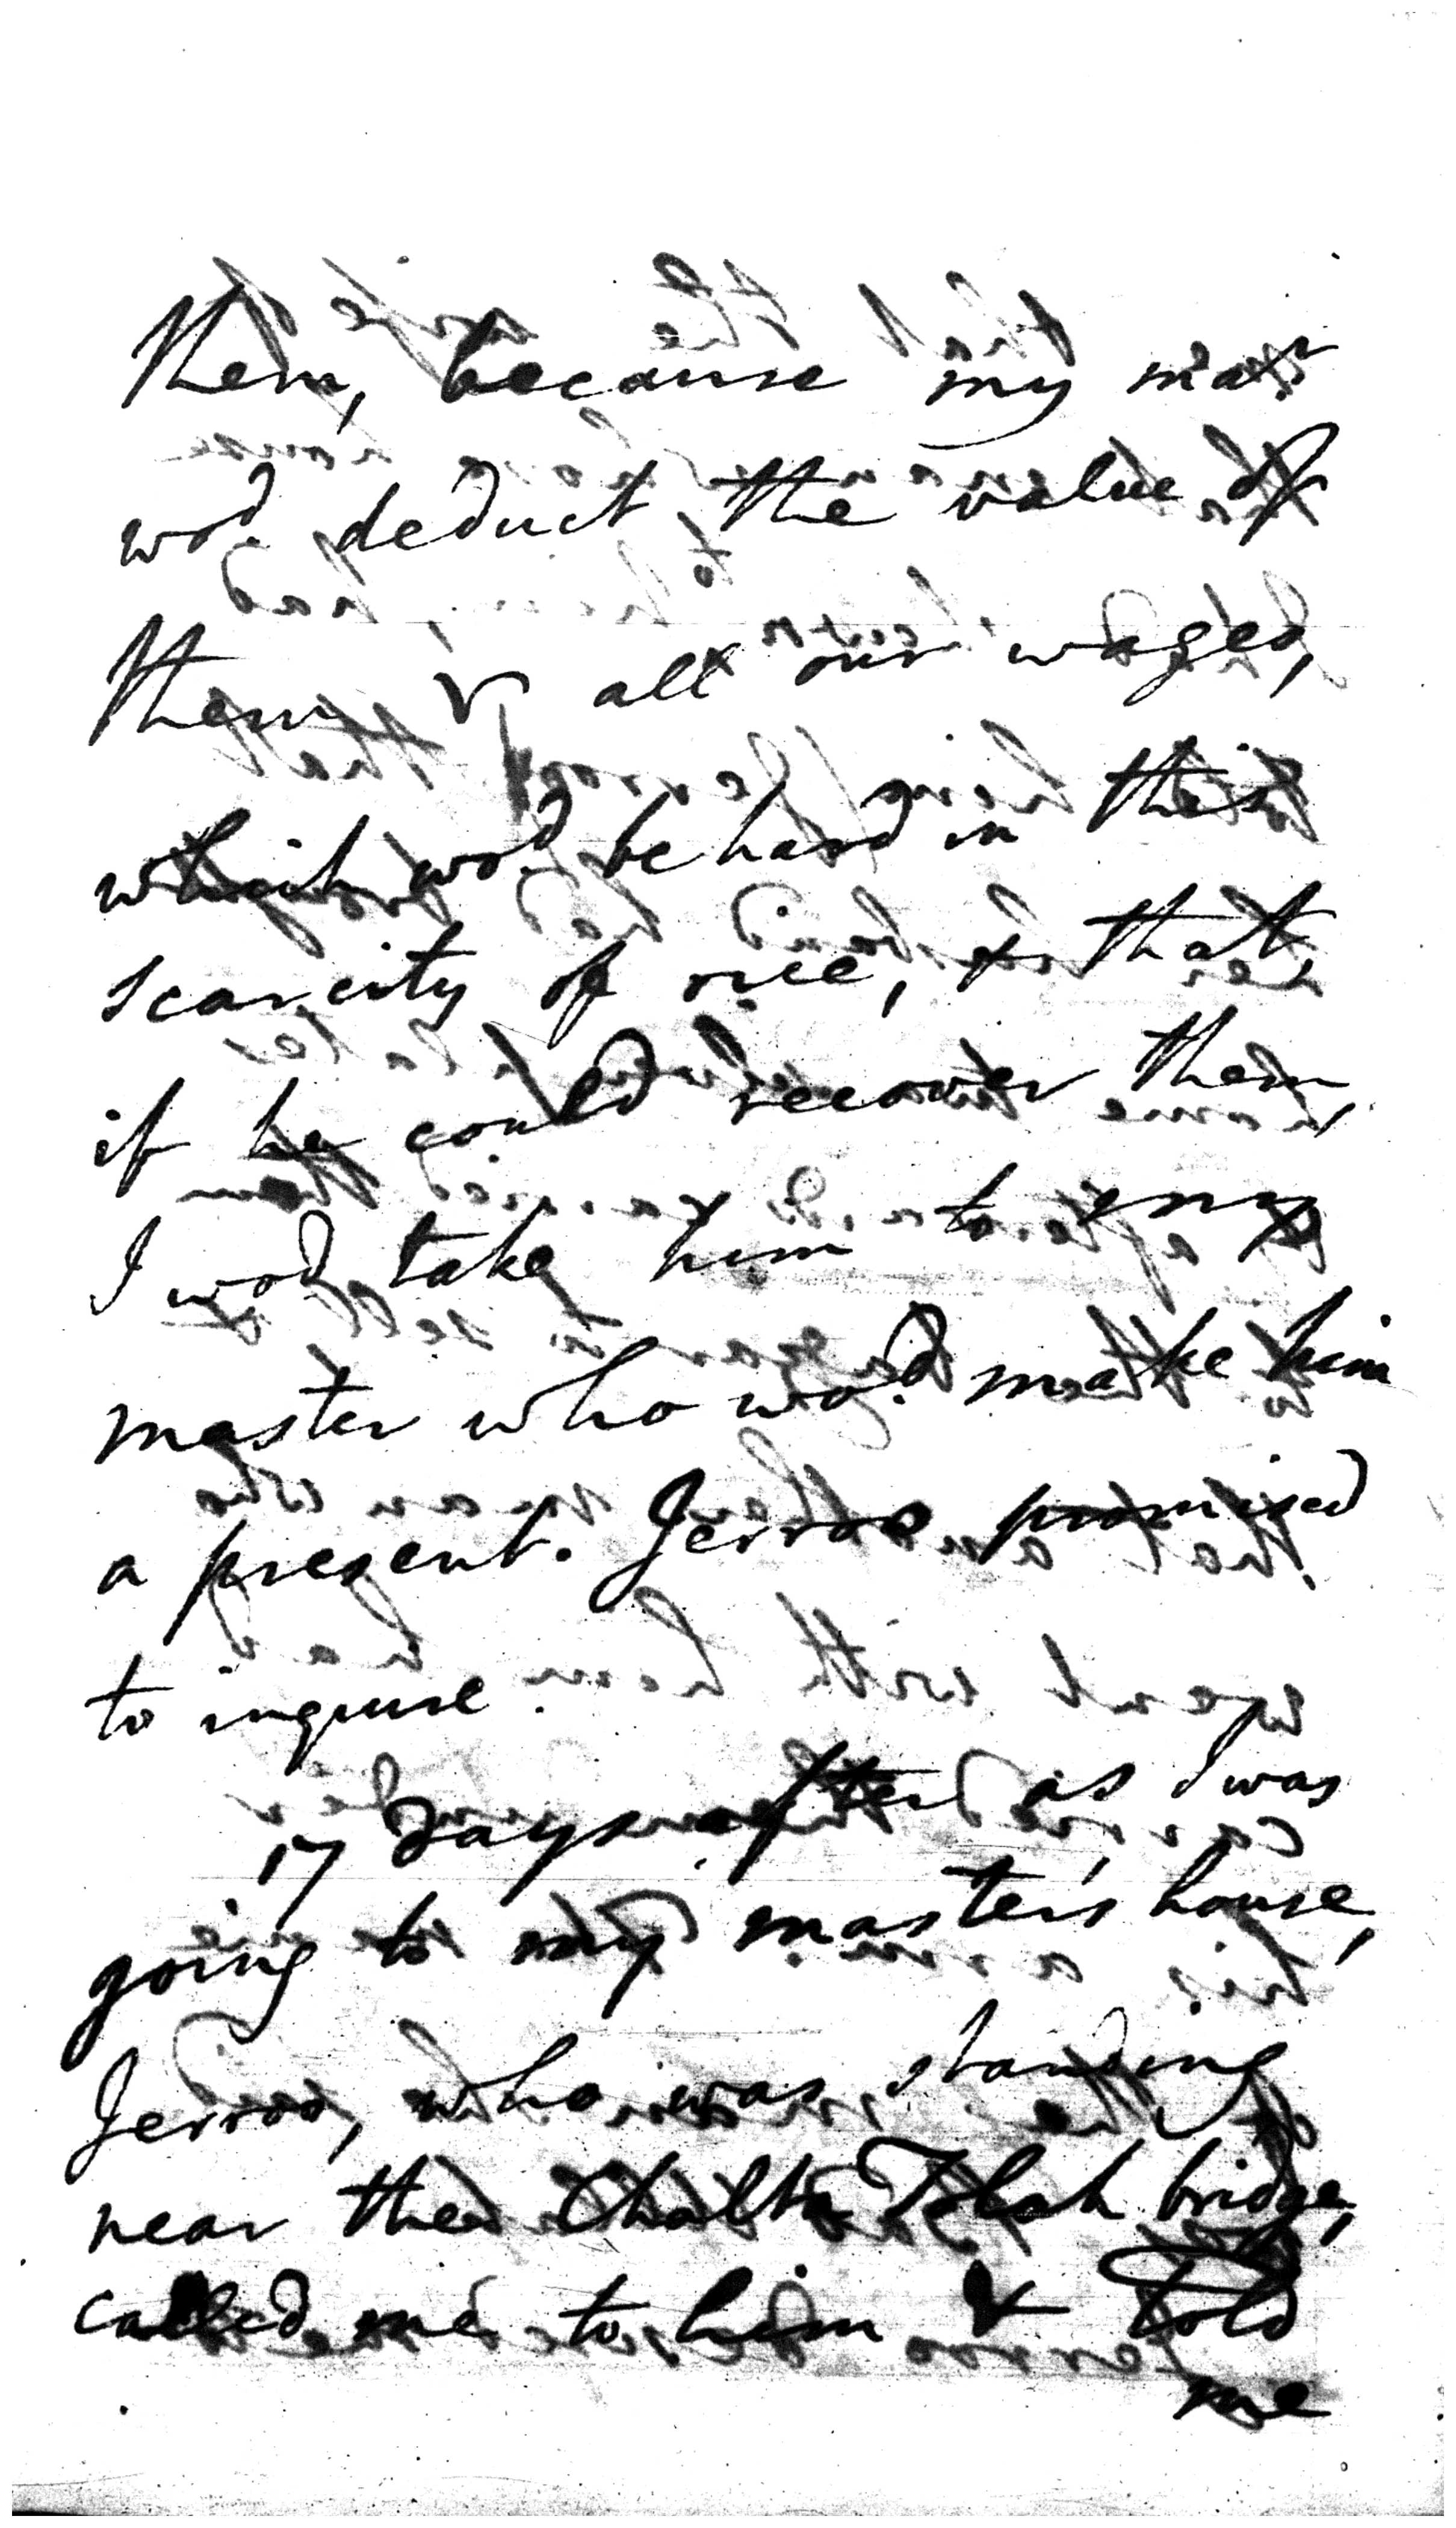 them, because my mast.r
wo.d deduct the value of
them & all our wages,
which wo.d be hard in this
scarcity of rice, & that,
if he could recover them,
I wo.d take him to my
master who wo.d make him
a present. Jerroo promised
to inquire.
17 Days after as I was
going to my master's house,
Jerroo, who was standing
near the Tolah bridge,
called me to him & told
me